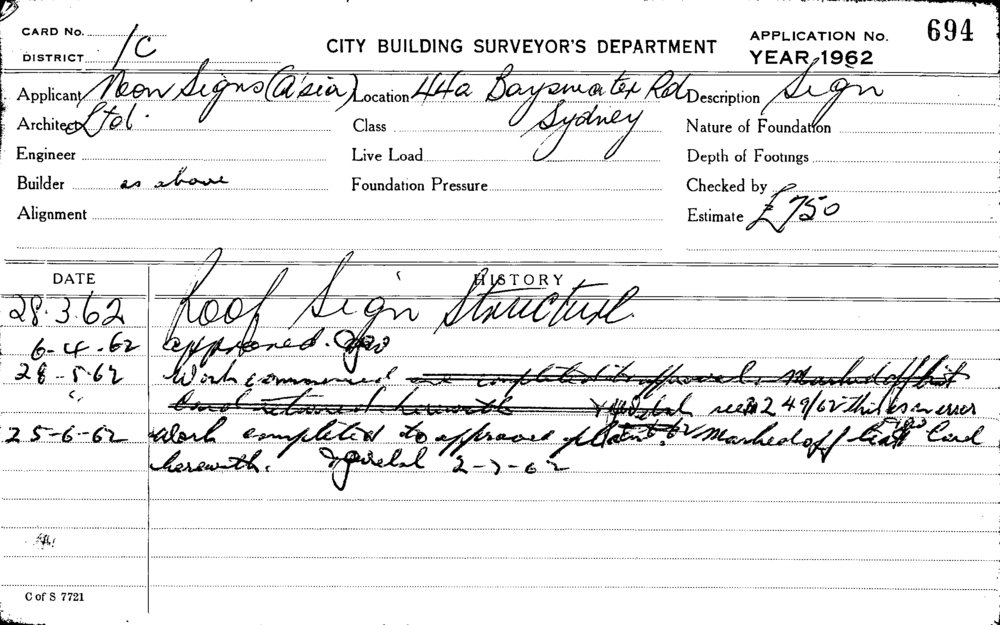 CARD No.
DISTRICT 1C
CITY BUILDING SURVEYOR'S DEPARTMENT
APPLICATION No. 694
YEAR 1962
Applicant Neon Signs (A'sia) Location 44a Bayswater Rd Description Sign
Architect Ltd. Class Sydney Nature of Foundation
Engineer Live Load Depth of Footings
Builder as above Foundation Pressure Checked by
Alignment Estimate £750
DATE HISTORY
28.3.62 Roof Sign Structure
6-4-62 approved.
28-5-62 Work commenced and completed to approval. Marked off list
" Card returned herewith 249/62 this is in error
25-6-62 Work completed to approved plan Marked off list Card
herewith. 2-7-62
C of S 7721